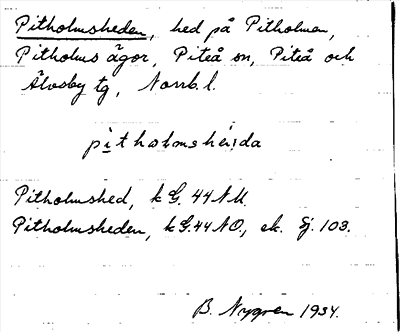 Pitholmsheden, hed på Pitholmen,
Pitholms ägor, Piteå sn, Piteå och
Älvsby tg, Norrb. l.
pitholmshéi̯da
Pitholmshed, k G. 44 N.U.
Pitholmsheden, k G. 44 NO, ek. bj. 103.
B. Nygren 1934.